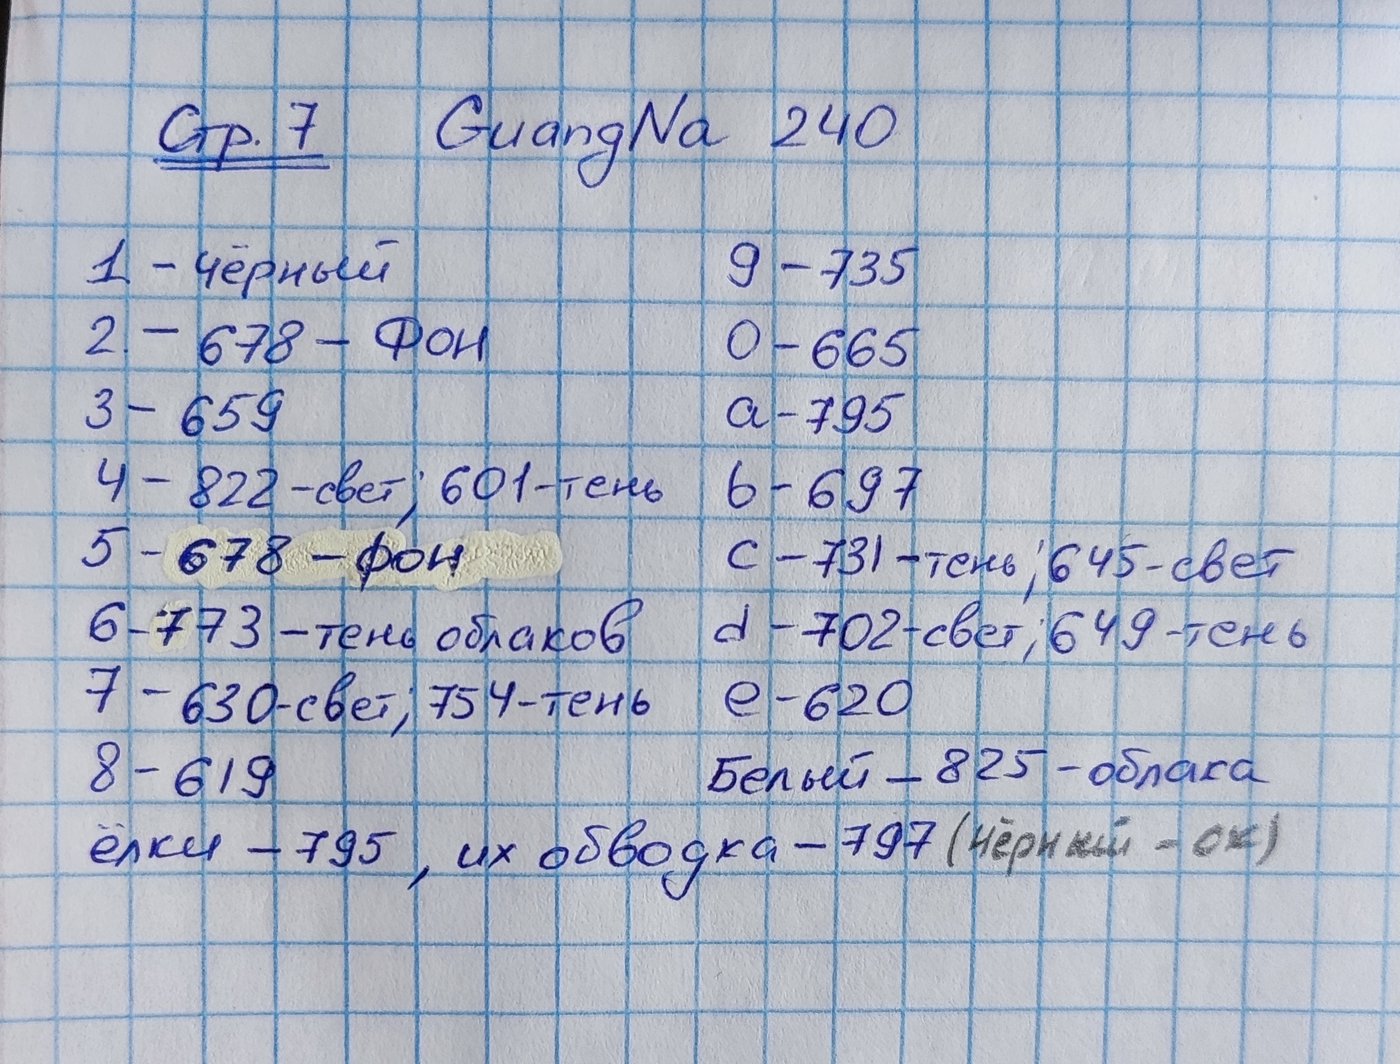 Стр. 7 GuangNa 240
1 - чёрный
2 - 678 - Фон
3 - 659
4 - 822 - свет; 601 - тень
5 - 678 - фон
6 - 773 - тень облаков
7 - 630 - свет; 754 - тень
8 - 619
9 - 735
0 - 665
a - 795
b - 697
c - 731 - тень; 645 - свет
d - 702 - свет; 649 - тень
e - 620
Белый - 825 - облака
ёлки - 795, их обводка - 797 (чёрный - ок)